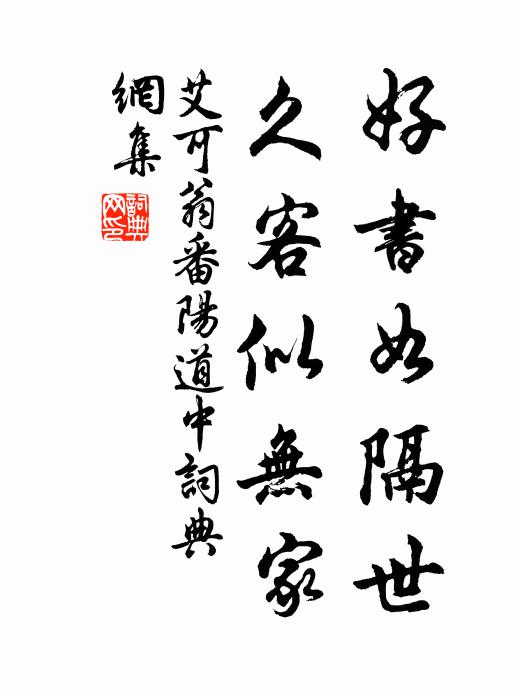 好書如隔世
久客似無家
艾可翁番陽道中詞典
網集
詞典
网印